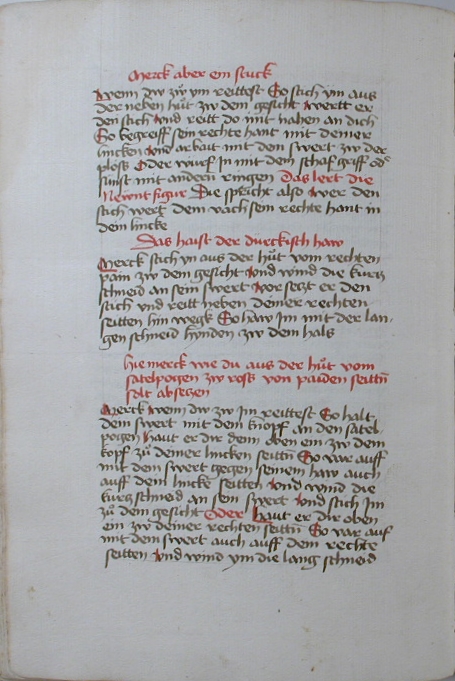 Merck aber ein stuck
Wenn dw zw ym reittest So stich ym aus
der neben hüt zw dem gesicht wertt er
den stich Vnd reitt do mit nahen an dich
So begreiff sein rechte hant mit deiner
lincken Vnd arbait mit dem swert zw der
plöss Oder würf jn mit dem schaf griff od
sunst mit andern ringen Das lert die
Newnt figur Die spricht also wer den
stich wert dem vach sein rechte hant in
dein lincke
Das haist der duerckisch haw
Merck stich yn aus der hüt vom rechten
pain zw dem gesicht Vnd wind die kurtz
schneid an sein swert vor setzt er den
stich vnd reitt neben deiner rechten
seitten hin wegk So haw im mit der lan-
gen schneid hynden zw dem hals
hie merck wie du aus der hüt vom
satelpogen zw ross von paiden seittn
solt absetzen
Merck wenn dw zw jm reittest So halt
dein swert mit dem knopf an den satel
pogen haut er dir denn oben ein zw dem
kopf zu deiner lincken seittn So var auff
mit dem swert gegen seinem haw auch
auff dein lincke seitten Vnd wind die
kurtz schneid an sein swert Vnd stich jm
zu dem gesicht Oder haut er dir oben
ein zw deiner rechten seittn So var auf
mit dem swert auch auff dein rechte
seitten Vnd wind ym die lang schneid